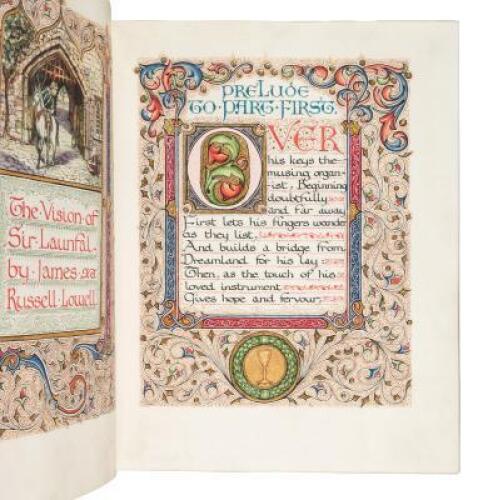 The Vision of
Sir Launfal
by James
Russell Lowell
PRELUDE
TO PART FIRST.
OVER
his keys the
musing organ-
ist, Beginning
doubtfully
and far away
First lets his fingers wander
as they list,
And builds a bridge from
Dreamland for his lay
Then, as the touch of his
loved instrument
Gives hope and fervour,